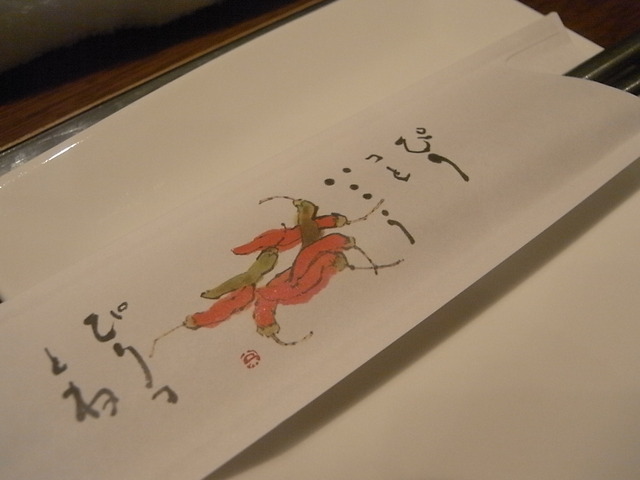 ぴり
っと
ぴりっ
とね